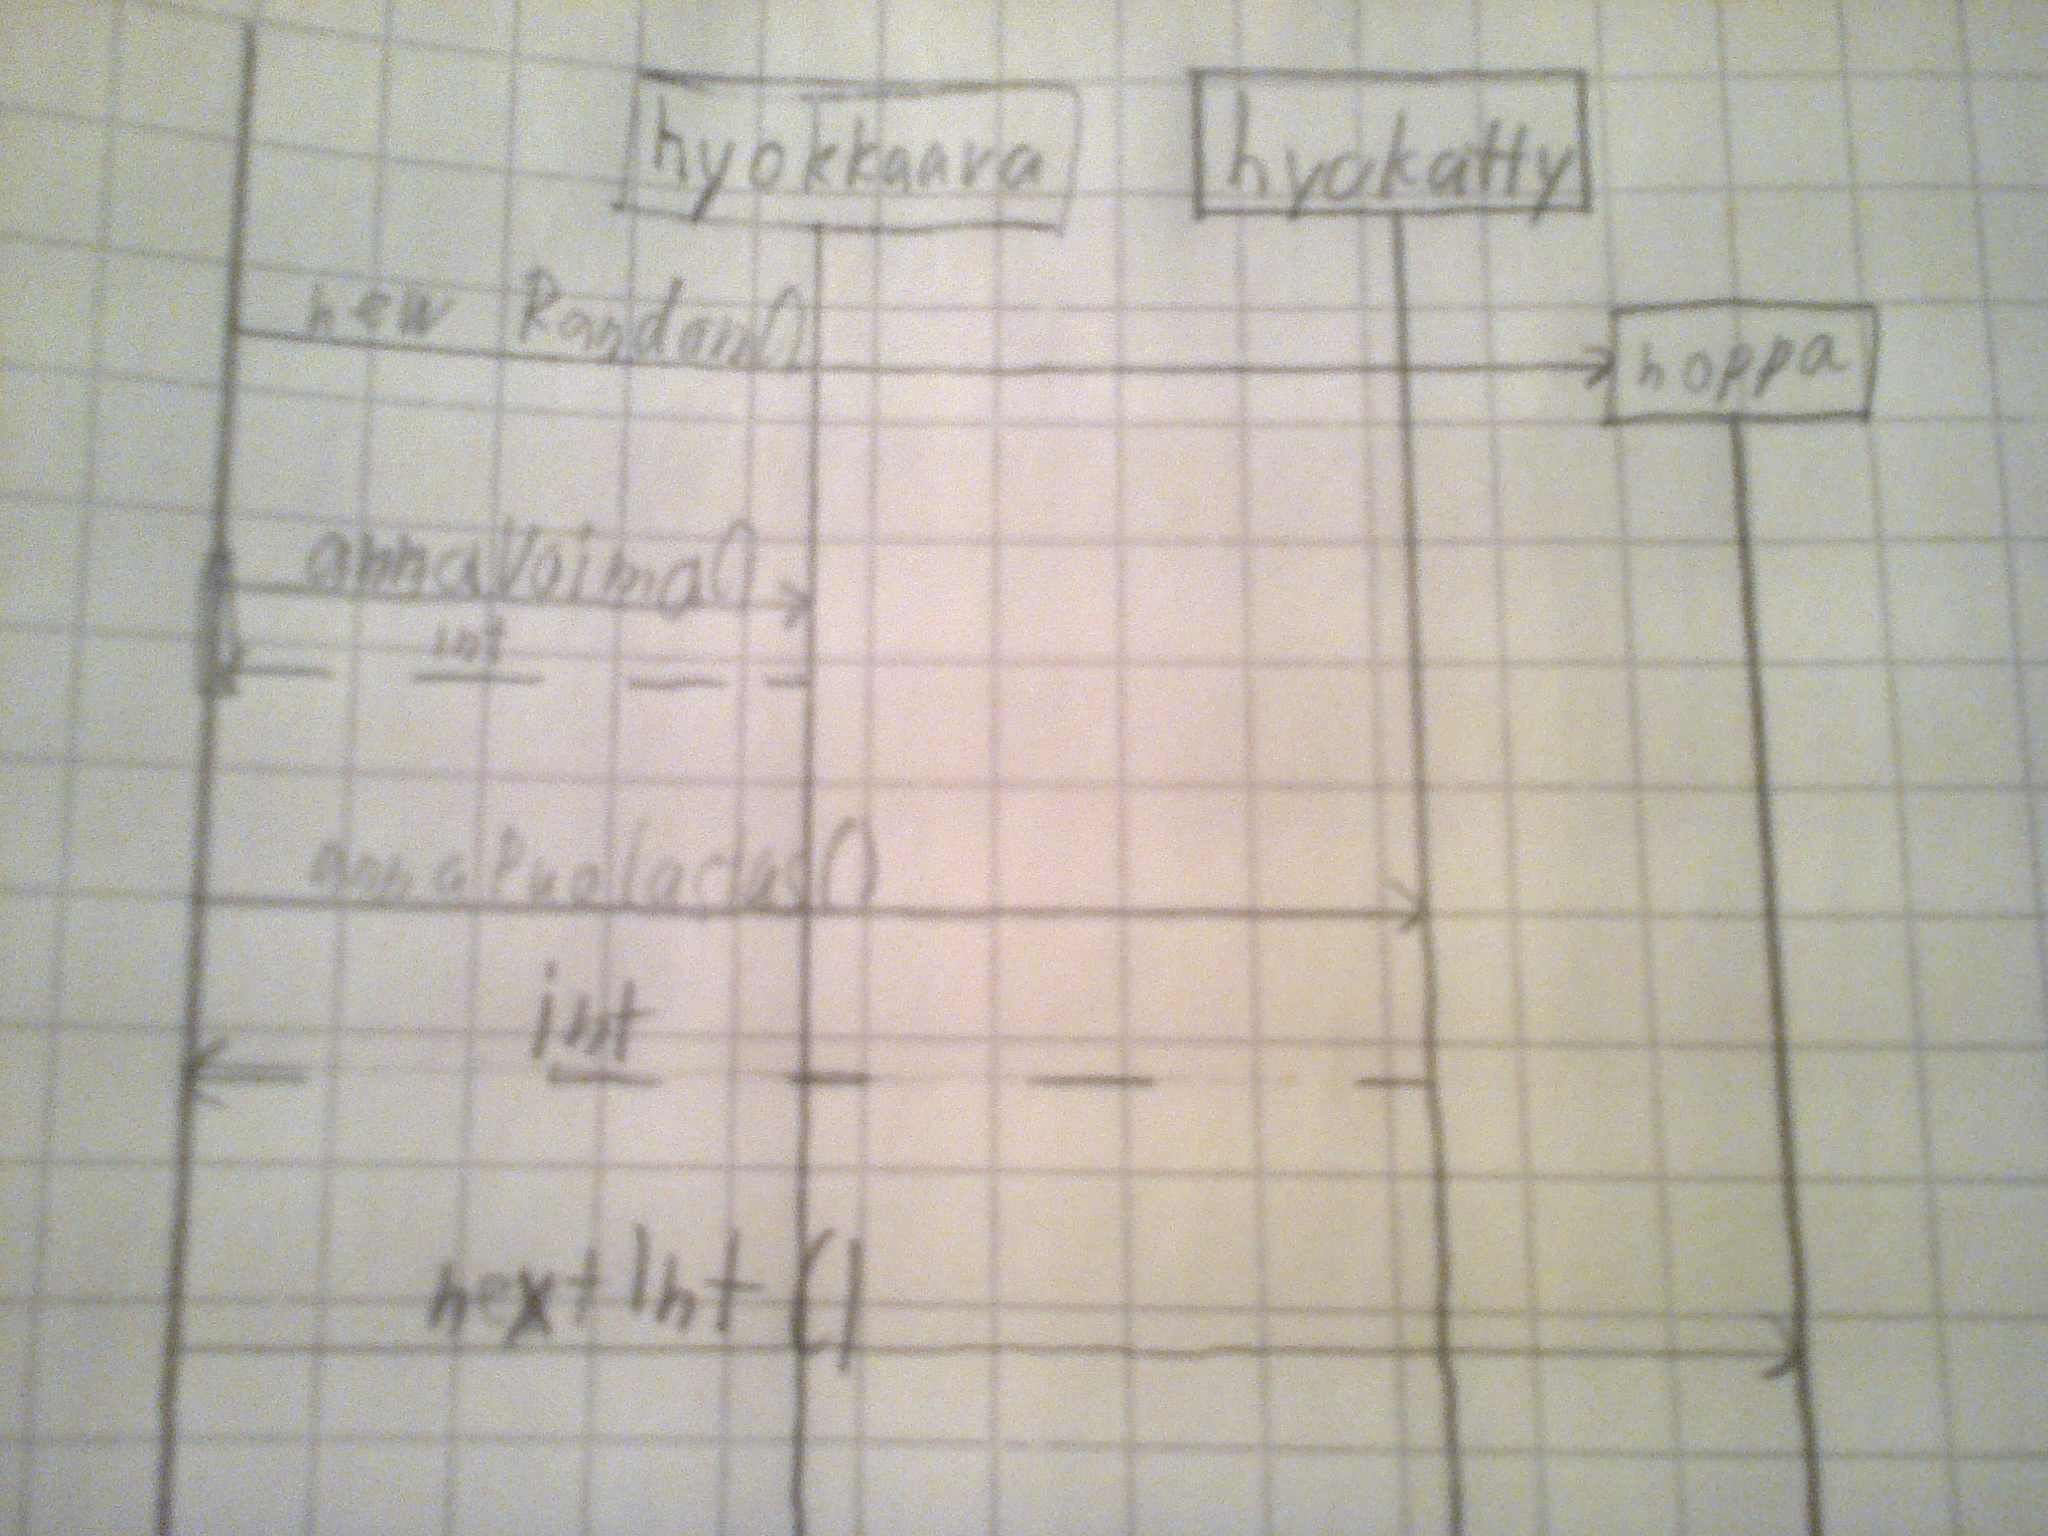 hyokkaava
hyokatty
new Random()
hoppa
annaVoima()
int
annaPuolacias()
int
nextInt()